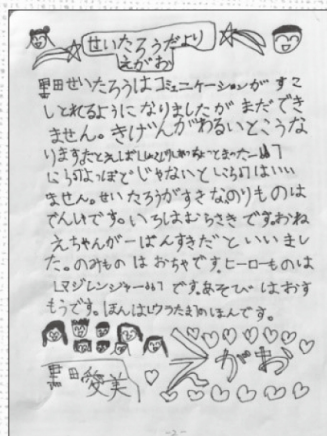 せいたろうだより
えがお
黒田せいたろうはコミュニケーションがすこ
しとれるようになりましたがまだでき
ません。きげんがわるいとこうな
ります
にらりよっぽどじゃないと
ません。せいたろうがすきなのりものは
でんしゃです。いろはむらさきです。おね
えちゃんが一ばんすきだといいまし
た。のみものはおちゃです。ヒーローものは
「マジレンジャー」です。あそびはおす
もうです。ほんは「ウラたま」のほんです。
えがお
黒田愛美
-2-